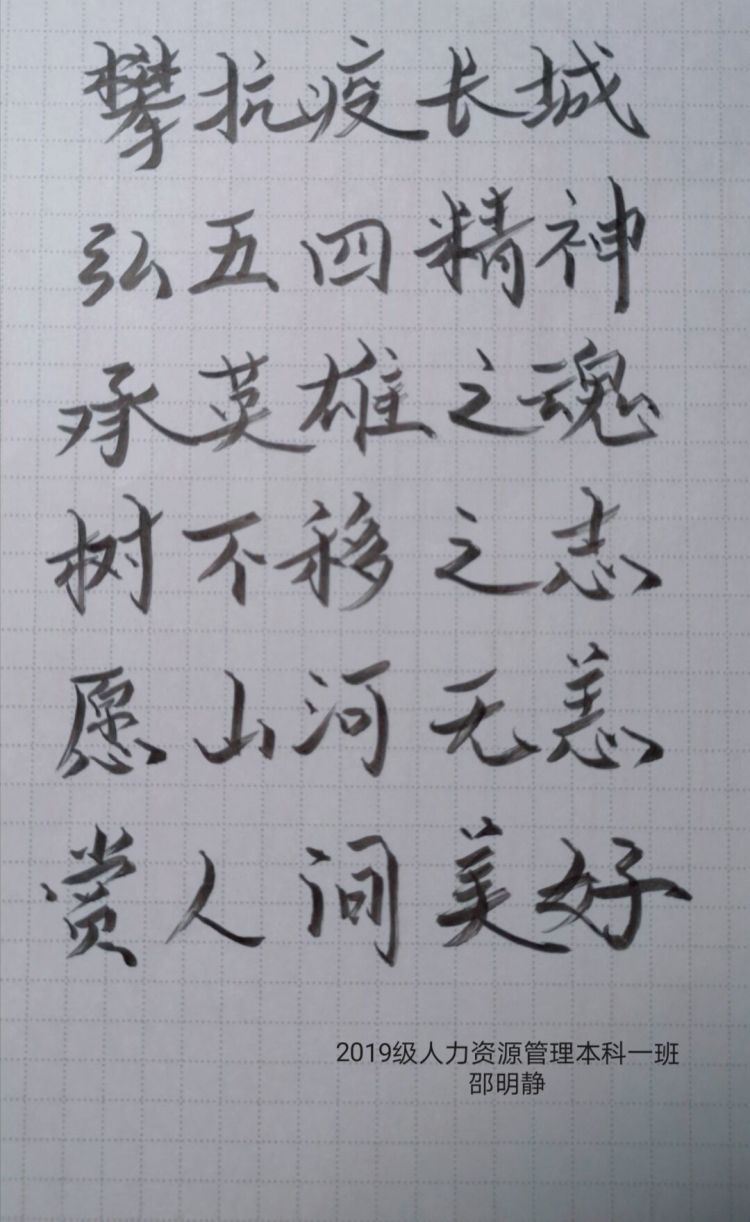 攀抗疫长城
弘五四精神
承英雄之魂
树不移之志
愿山河无恙
赏人间美好
2019级人力资源管理本科一班
邵明静